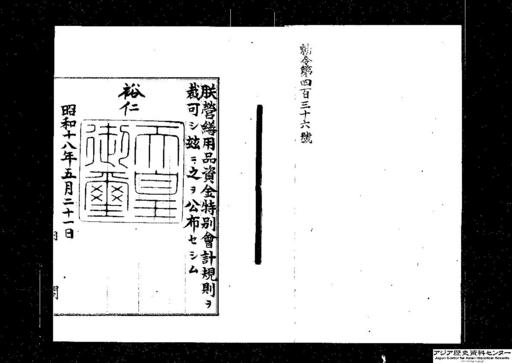 勅令第四百三十六號
朕營繕用品資金特別會計規則ヲ
裁可シ玆ニ之ヲ公布セシム
裕仁
天皇
御璽
昭和十八年五月二十一日
アジア歴史資料センター
Japan Center for Asian Historical Records